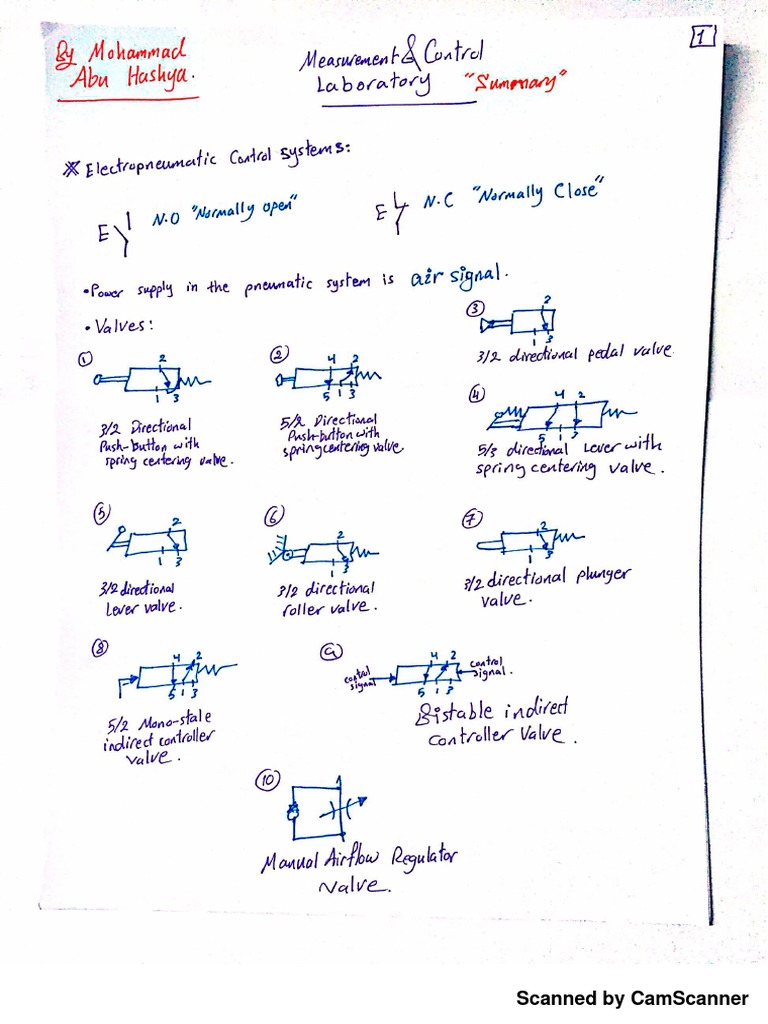 By Mohammad
Abu Hashya.
Measurement & Control
Laboratory "Summary"
1
* Electropneumatic Control systems:
E N.O "Normally open"
E N.C "Normally Close"
• Power supply in the pneumatic system is air signal.
• Valves:
1
2
1 3
3/2 Directional
Push-button with
spring centering valve.
2
4 2
5 1 3
5/2 Directional
Push-button with
spring centering valve.
3
2
1 3
3/2 directional pedal valve.
4
4 2
5 1 3
5/3 directional Lever with
spring centering valve.
5
2
1 3
3/2 directional
Lever valve.
6
2
1 3
3/2 directional
roller valve.
7
2
1 3
3/2 directional plunger
valve.
8
4 2
5 1 3
5/2 Mono-stale
indirect controller
valve.
9
control
signal
4 2
5 1 3
control
signal.
Bistable indirect
Controller Valve.
10
Manual Airflow Regulator
Valve.
Scanned by CamScanner